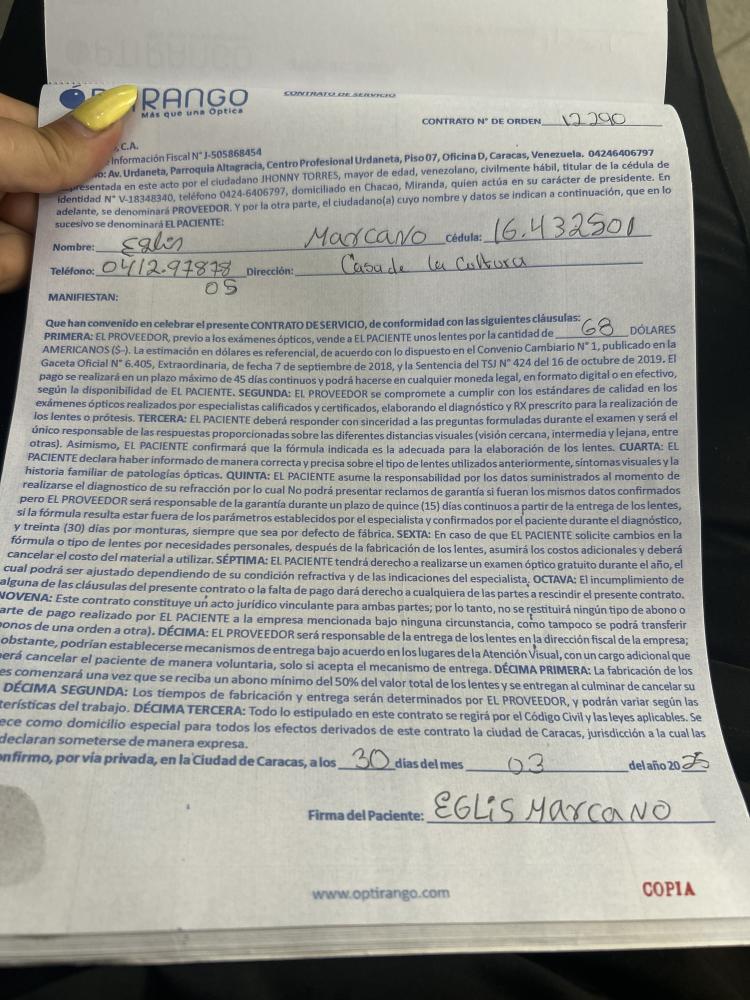 RANGO
Más que una Óptica
CONTRATO DE SERVICIO
CONTRATO N° DE ORDEN 12290
, C.A.
Información Fiscal N° J-505868454
o: Av. Urdaneta, Parroquia Altagracia, Centro Profesional Urdaneta, Piso 07, Oficina D, Caracas, Venezuela. 04246406797
presentada en este acto por el ciudadano JHONNY TORRES, mayor de edad, venezolano, civilmente hábil, titular de la cédula de
Identidad N° V-18348340, teléfono 0424-6406797, domiciliado en Chacao, Miranda, quien actúa en su carácter de presidente. En
adelante, se denominará PROVEEDOR. Y por la otra parte, el ciudadano(a) cuyo nombre y datos se indican a continuación, que en lo
sucesivo se denominará EL PACIENTE:
Nombre: Eglis Marcano Cédula: 16.432501
Teléfono: 0412.97878 Dirección: Casa de la Cultura
05
MANIFIESTAN:
Que han convenido en celebrar el presente CONTRATO DE SERVICIO, de conformidad con las siguientes cláusulas:
PRIMERA: EL PROVEEDOR, previo a los exámenes ópticos, vende a EL PACIENTE unos lentes por la cantidad de 68 DÓLARES
AMERICANOS (S-). La estimación en dólares es referencial, de acuerdo con lo dispuesto en el Convenio Cambiario N° 1, publicado en la
Gaceta Oficial N° 6.405, Extraordinaria, de fecha 7 de septiembre de 2018, y la Sentencia del TSJ N° 424 del 16 de octubre de 2019. El
pago se realizará en un plazo máximo de 45 días continuos y podrá hacerse en cualquier moneda legal, en formato digital o en efectivo,
según la disponibilidad de EL PACIENTE. SEGUNDA: EL PROVEEDOR se compromete a cumplir con los estándares de calidad en los
exámenes ópticos realizados por especialistas calificados y certificados, elaborando el diagnóstico y RX prescrito para la realización de
los lentes o prótesis. TERCERA: EL PACIENTE deberá responder con sinceridad a las preguntas formuladas durante el examen y será el
único responsable de las respuestas proporcionadas sobre las diferentes distancias visuales (visión cercana, intermedia y lejana, entre
otras). Asimismo, EL PACIENTE confirmará que la fórmula indicada es la adecuada para la elaboración de los lentes. CUARTA: EL
PACIENTE declara haber informado de manera correcta y precisa sobre el tipo de lentes utilizados anteriormente, síntomas visuales y la
historia familiar de patologías ópticas. QUINTA: EL PACIENTE asume la responsabilidad por los datos suministrados al momento de
realizarse el diagnostico de su refracción por lo cual No podrá presentar reclamos de garantía si fueran los mismos datos confirmados
pero EL PROVEEDOR será responsable de la garantía durante un plazo de quince (15) días continuos a partir de la entrega de los lentes,
si la fórmula resulta estar fuera de los parámetros establecidos por el especialista y confirmados por el paciente durante el diagnóstico,
y treinta (30) días por monturas, siempre que sea por defecto de fábrica. SEXTA: En caso de que EL PACIENTE solicite cambios en la
fórmula o tipo de lentes por necesidades personales, después de la fabricación de los lentes, asumirá los costos adicionales y deberá
cancelar el costo del material a utilizar. SÉPTIMA: EL PACIENTE tendrá derecho a realizarse un examen óptico gratuito durante el año, el
cual podrá ser ajustado dependiendo de su condición refractiva y de las indicaciones del especialista. OCTAVA: El incumplimiento de
alguna de las cláusulas del presente contrato o la falta de pago dará derecho a cualquiera de las partes a rescindir el presente contrato.
NOVENA: Este contrato constituye un acto jurídico vinculante para ambas partes; por lo tanto, no se restituirá ningún tipo de abono o
arte de pago realizado por EL PACIENTE a la empresa mencionada bajo ninguna circunstancia, como tampoco se podrá transferir
onos de una orden a otra). DÉCIMA: EL PROVEEDOR será responsable de la entrega de los lentes en la dirección fiscal de la empresa;
obstante, podrían establecerse mecanismos de entrega bajo acuerdo en los lugares de la Atención Visual, con un cargo adicional que
erá cancelar el paciente de manera voluntaria, solo si acepta el mecanismo de entrega. DÉCIMA PRIMERA: La fabricación de los
es comenzará una vez que se reciba un abono mínimo del 50% del valor total de los lentes y se entregan al culminar de cancelar su
DÉCIMA SEGUNDA: Los tiempos de fabricación y entrega serán determinados por EL PROVEEDOR, y podrán variar según las
terísticas del trabajo. DÉCIMA TERCERA: Todo lo estipulado en este contrato se regirá por el Código Civil y las leyes aplicables. Se
ece como domicilio especial para todos los efectos derivados de este contrato la ciudad de Caracas, jurisdicción a la cual las
declaran someterse de manera expresa.
onfirmo, por vía privada, en la Ciudad de Caracas, a los 30 días del mes 03 del año 2025
Firma del Paciente: EGLIS MARCANO
www.optirango.com
COPIA